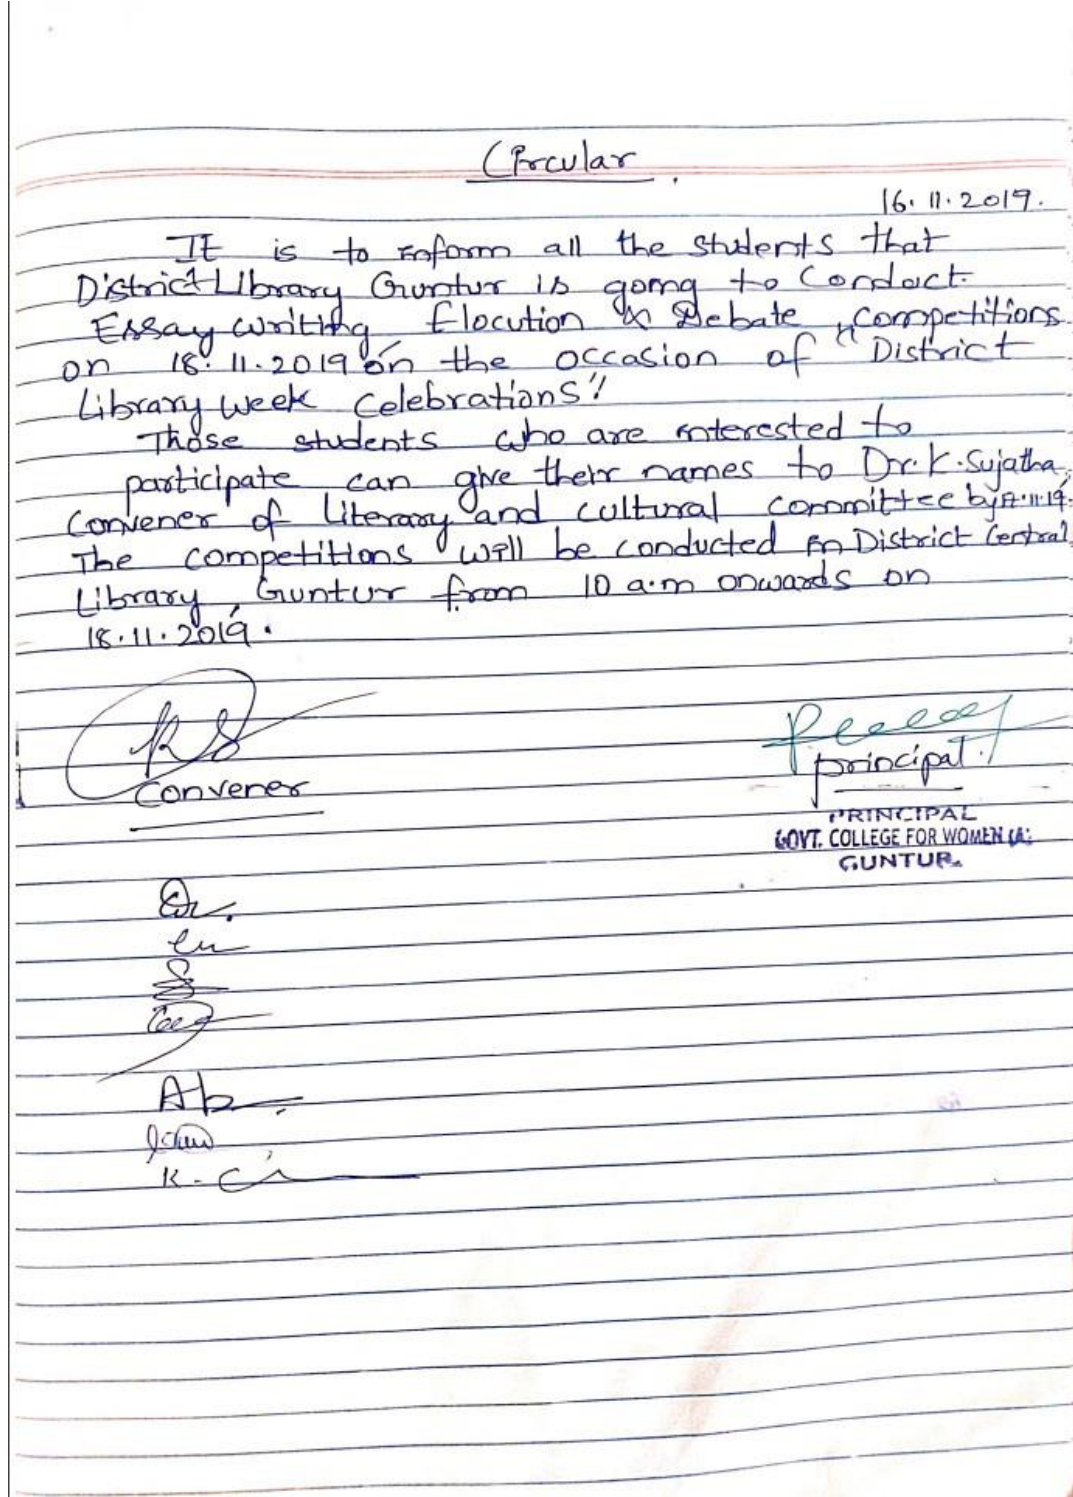 Circular.
16.11.2019.
It is to inform all the students that
District Library Guntur is going to Conduct
Essay writing, Elocution & Debate competitions
on 18.11.2019 on the occasion of "District
Library week Celebrations".
Those students who are interested to
participate can give their names to Dr.K.Sujatha,
Convener of Literary and cultural committee by 17.11.19.
The competitions will be conducted in District Central
Library, Guntur from 10 a.m onwards on
18.11.2019.
Convener
principal.
PRINCIPAL
GOVT. COLLEGE FOR WOMEN (A)
GUNTUR.